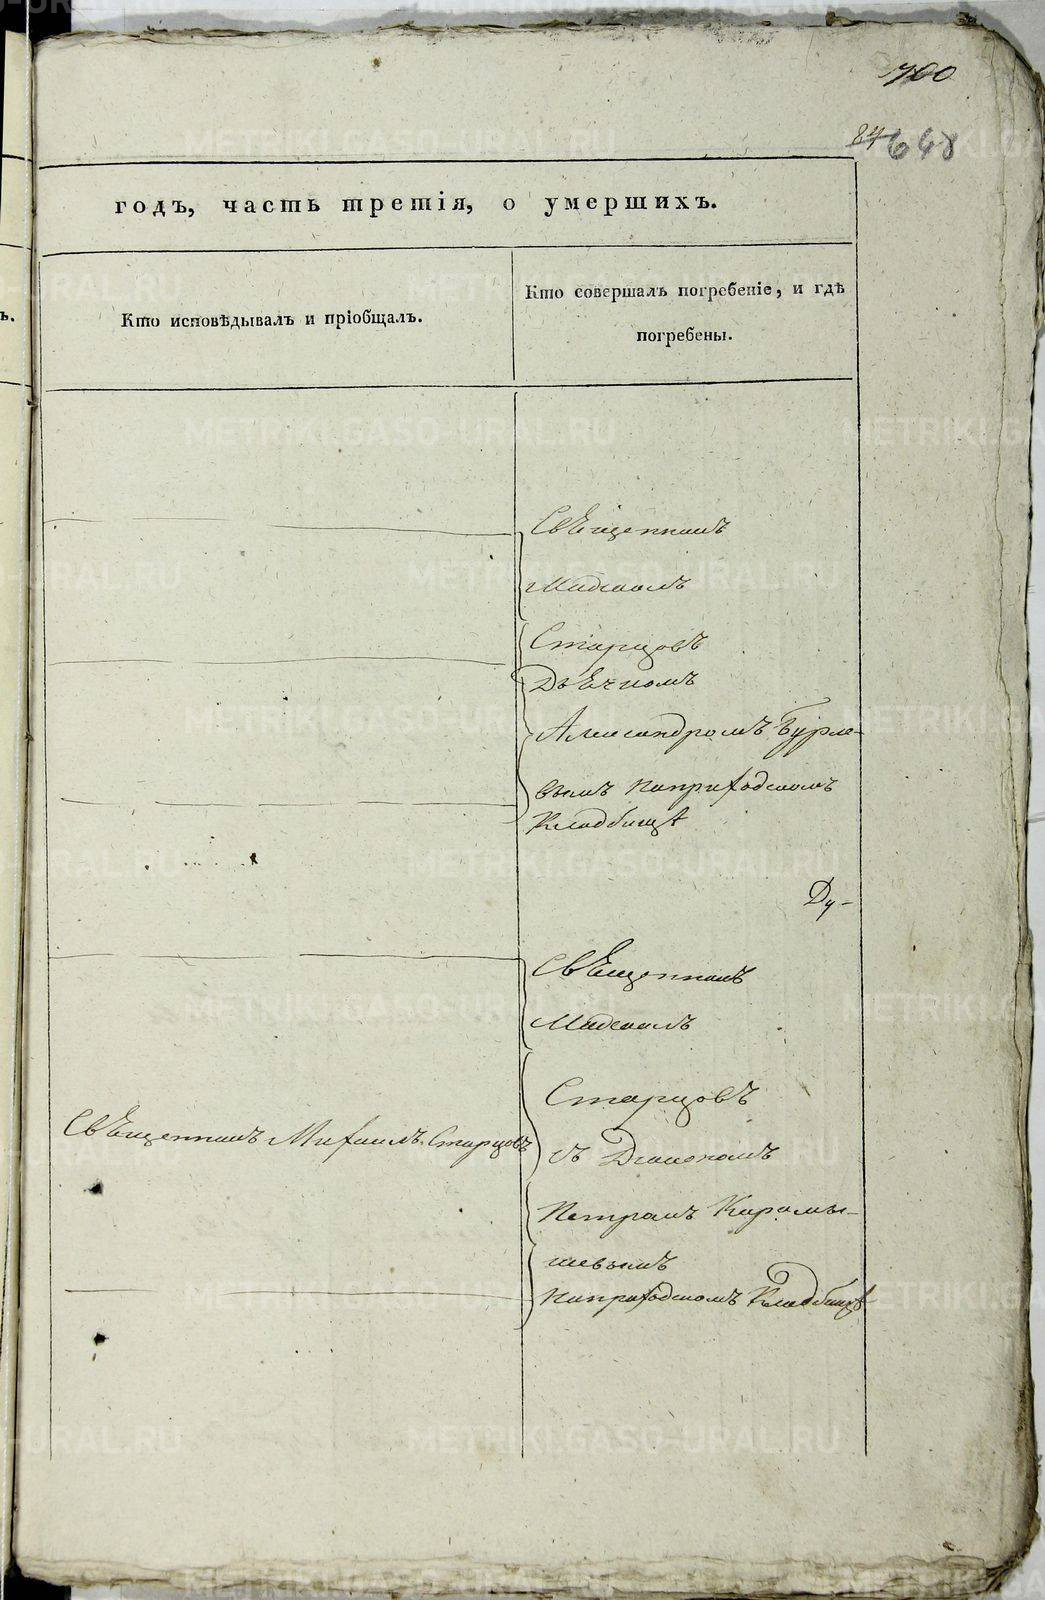 700
84 648
годъ, часть третія, о умершихъ.
Кто исповѣдывалъ и пріобщалъ.
Кто совершалъ погребеніе, и гдѣ
погребены.
Свѣщенникъ
Старцовъ
Дьѣчкомъ
Александромъ Бурле-
вымъ наприходскомъ
Кладбищѣ
Ду-
Свѣщенникъ
Старцовъ
Свѣщенникъ Михаилъ Старцовъ
съ Дьякономъ
Петромъ Карамы-
шевымъ
наприходскомъ Кладбищѣ
METRIKI.GASO-URAL.RU